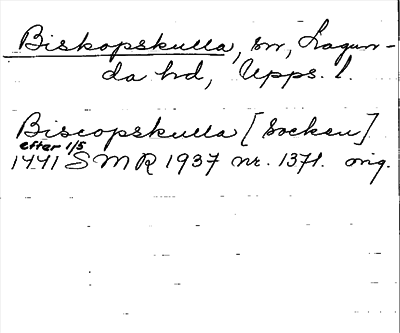 Biskopskulla, sn, Lagun-
da hd, Upps. l.
Biscopskulla [Socken]
efter 1/5
1441 SMR 1937 nr. 1371. orig.